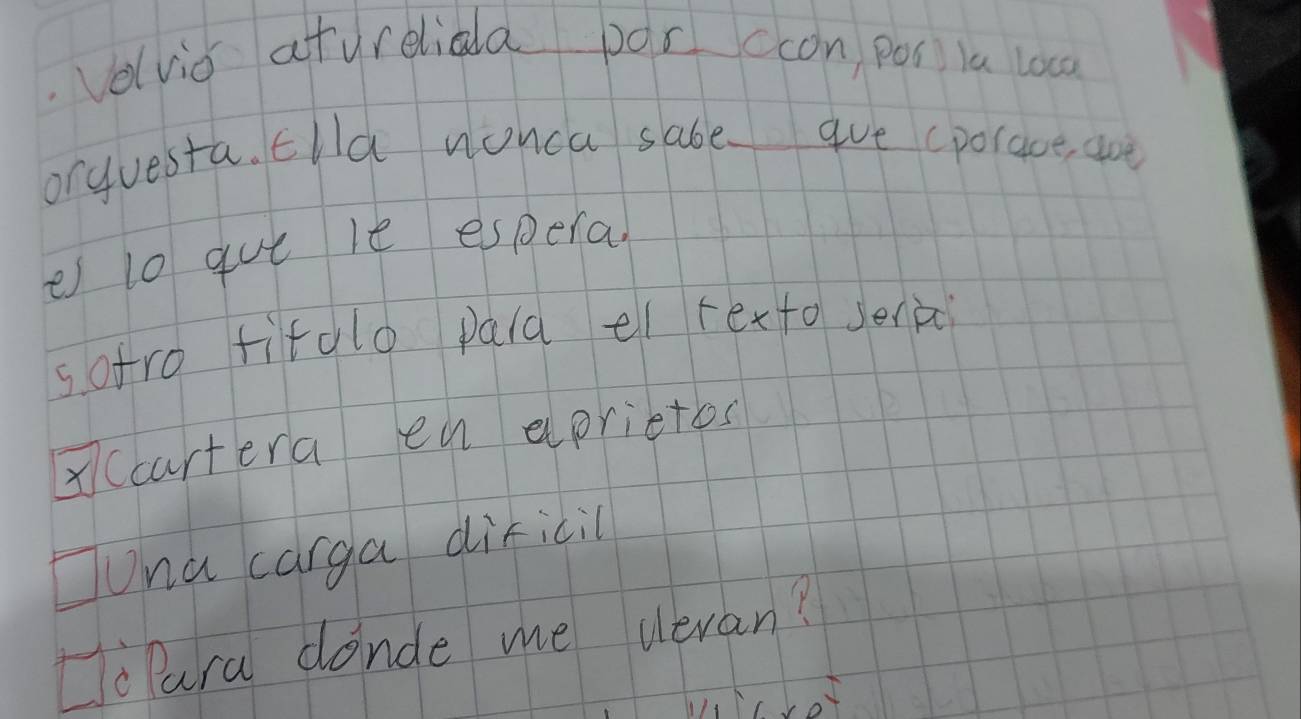 . Volvió aturdida por (con, por) la loca
orquesta. Ella nunca sabe que (porque, que)
es lo que le espera.
5. Otro título para el texto será:
x Ccartera en aprietos
Una carga dificil
¿Para dónde me llevan?